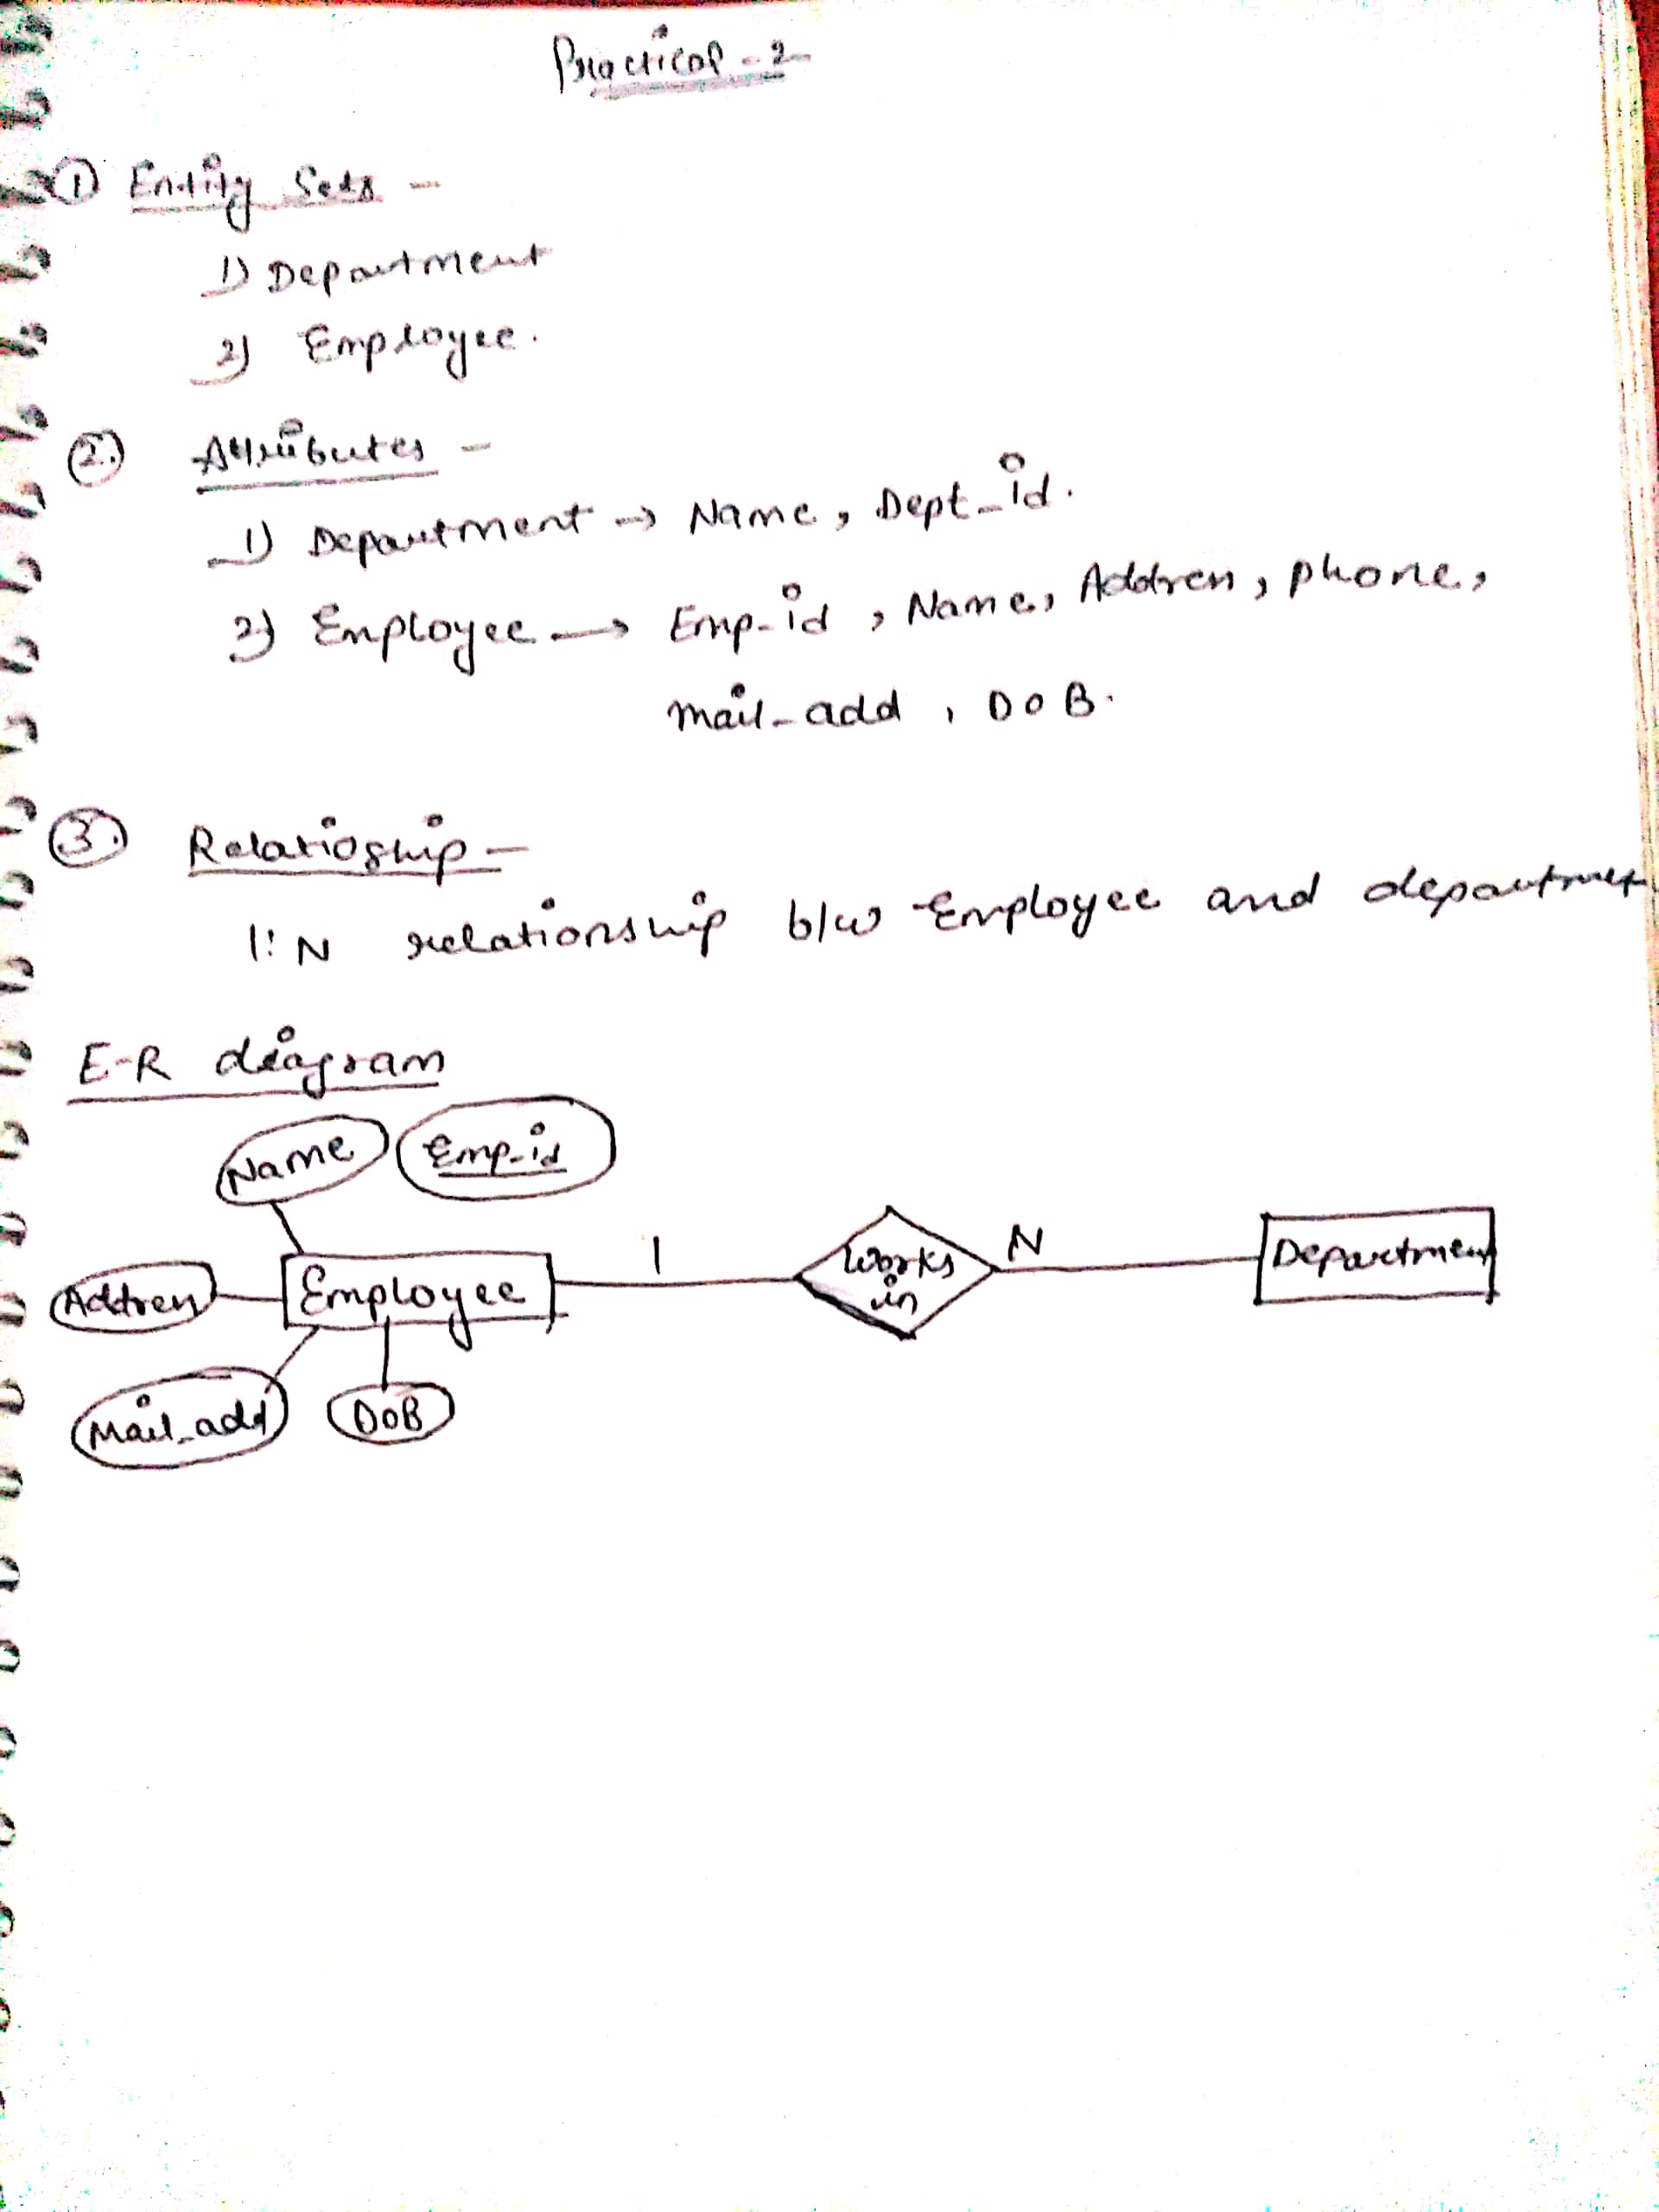 Practical - 2
① Entity Sets -
1) Department
2) Employee.
②. Attributes -
1) Department → Name, Dept_id.
2) Employee → Emp-id, Name, Address, phone,
mail-add, DOB.
③. Relatioship -
1:N relationship b/w Employee and department
E-R diagram
Name Emp-id
Address Employee 1 Works in N Department
Mail_add DOB